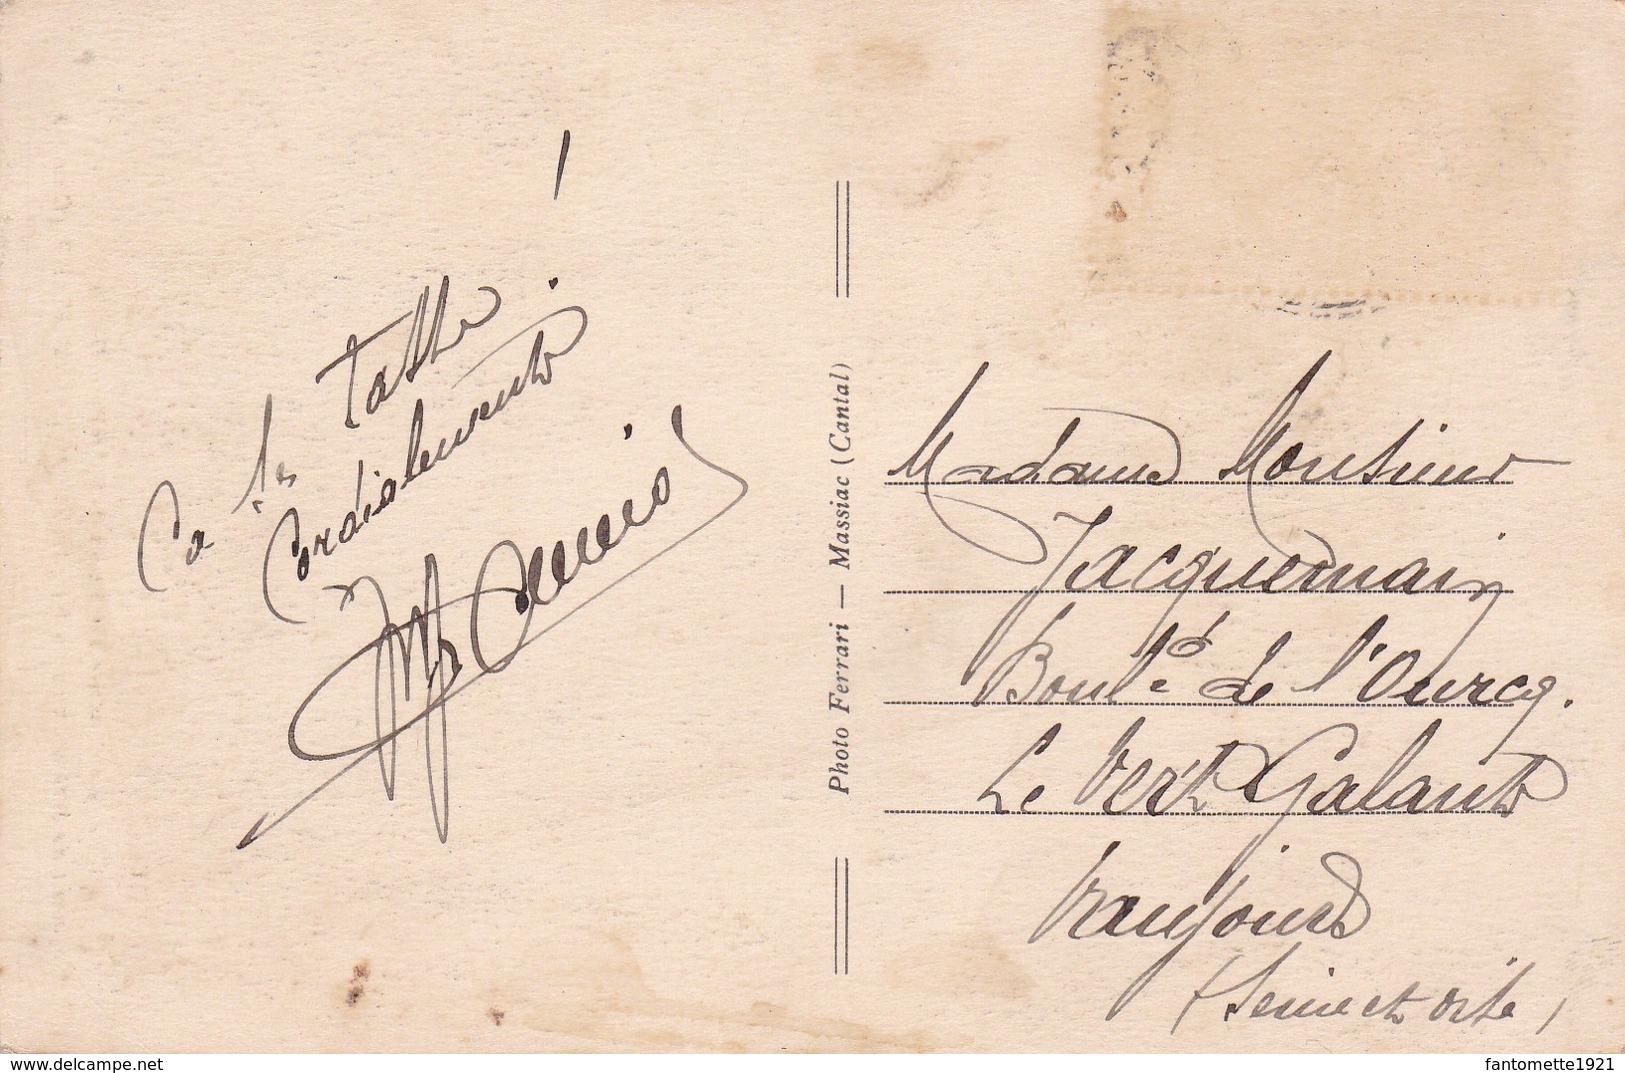 Cordialement
Photo Ferrari — Massiac (Cantal)
Madame Monsieur
Jacquemain
Boul.d de l'Ourcq.
Le Vert Galant
Vaujours
(Seine et Oise)
www.delcampe.net
fantomette1921